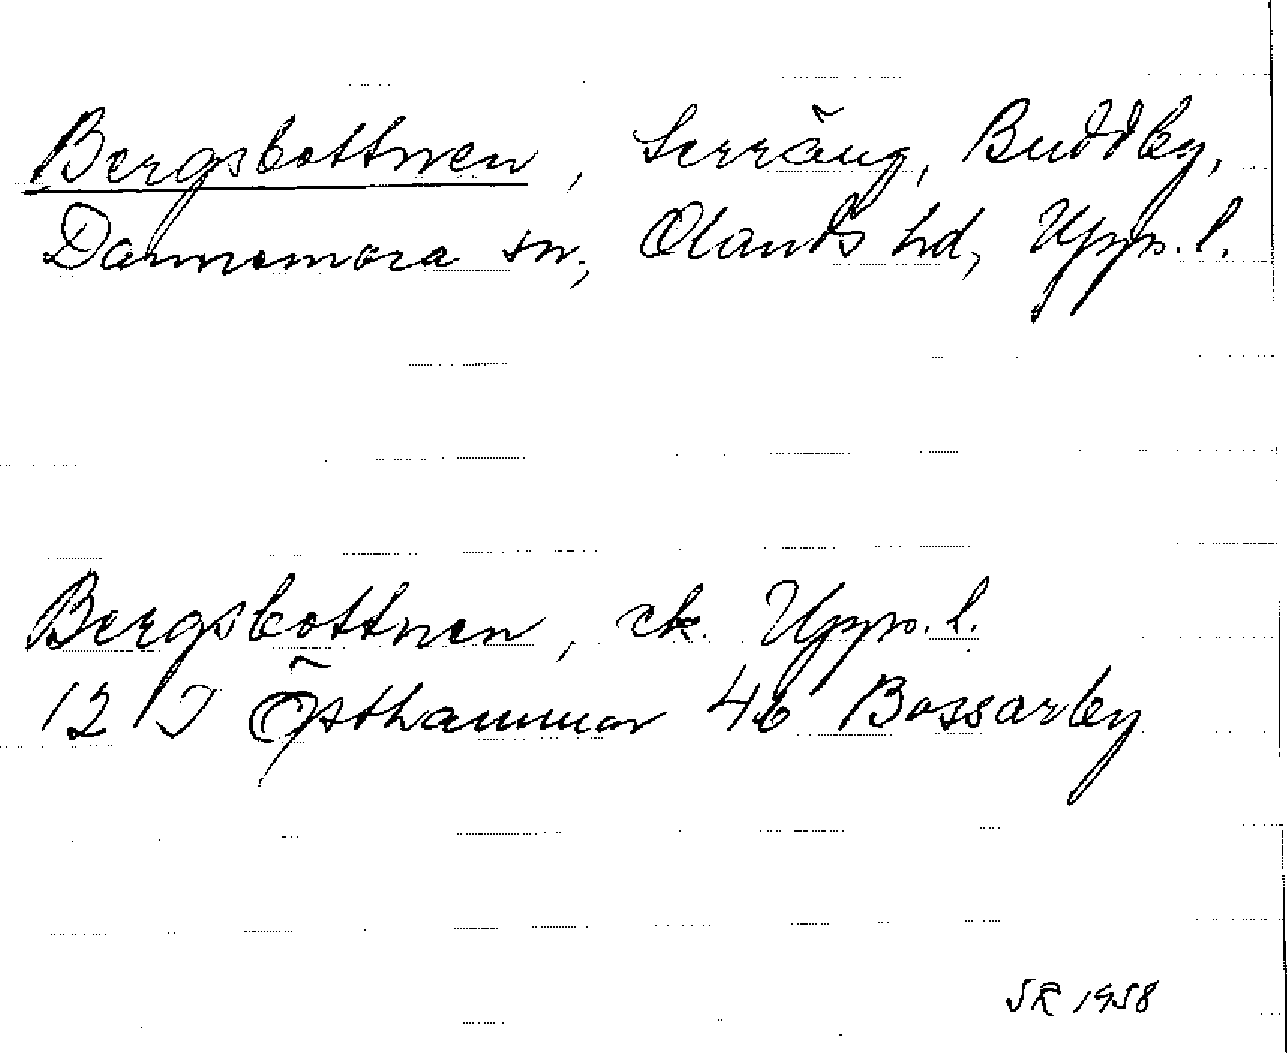 Bergsbottnen, Terräng, Buddby,
Dannemora sn, Olands hd, Upps. l.
Bergsbottnen, ek. Upps. l.
12 I Östhammar 4b Bossarby
SR 1958